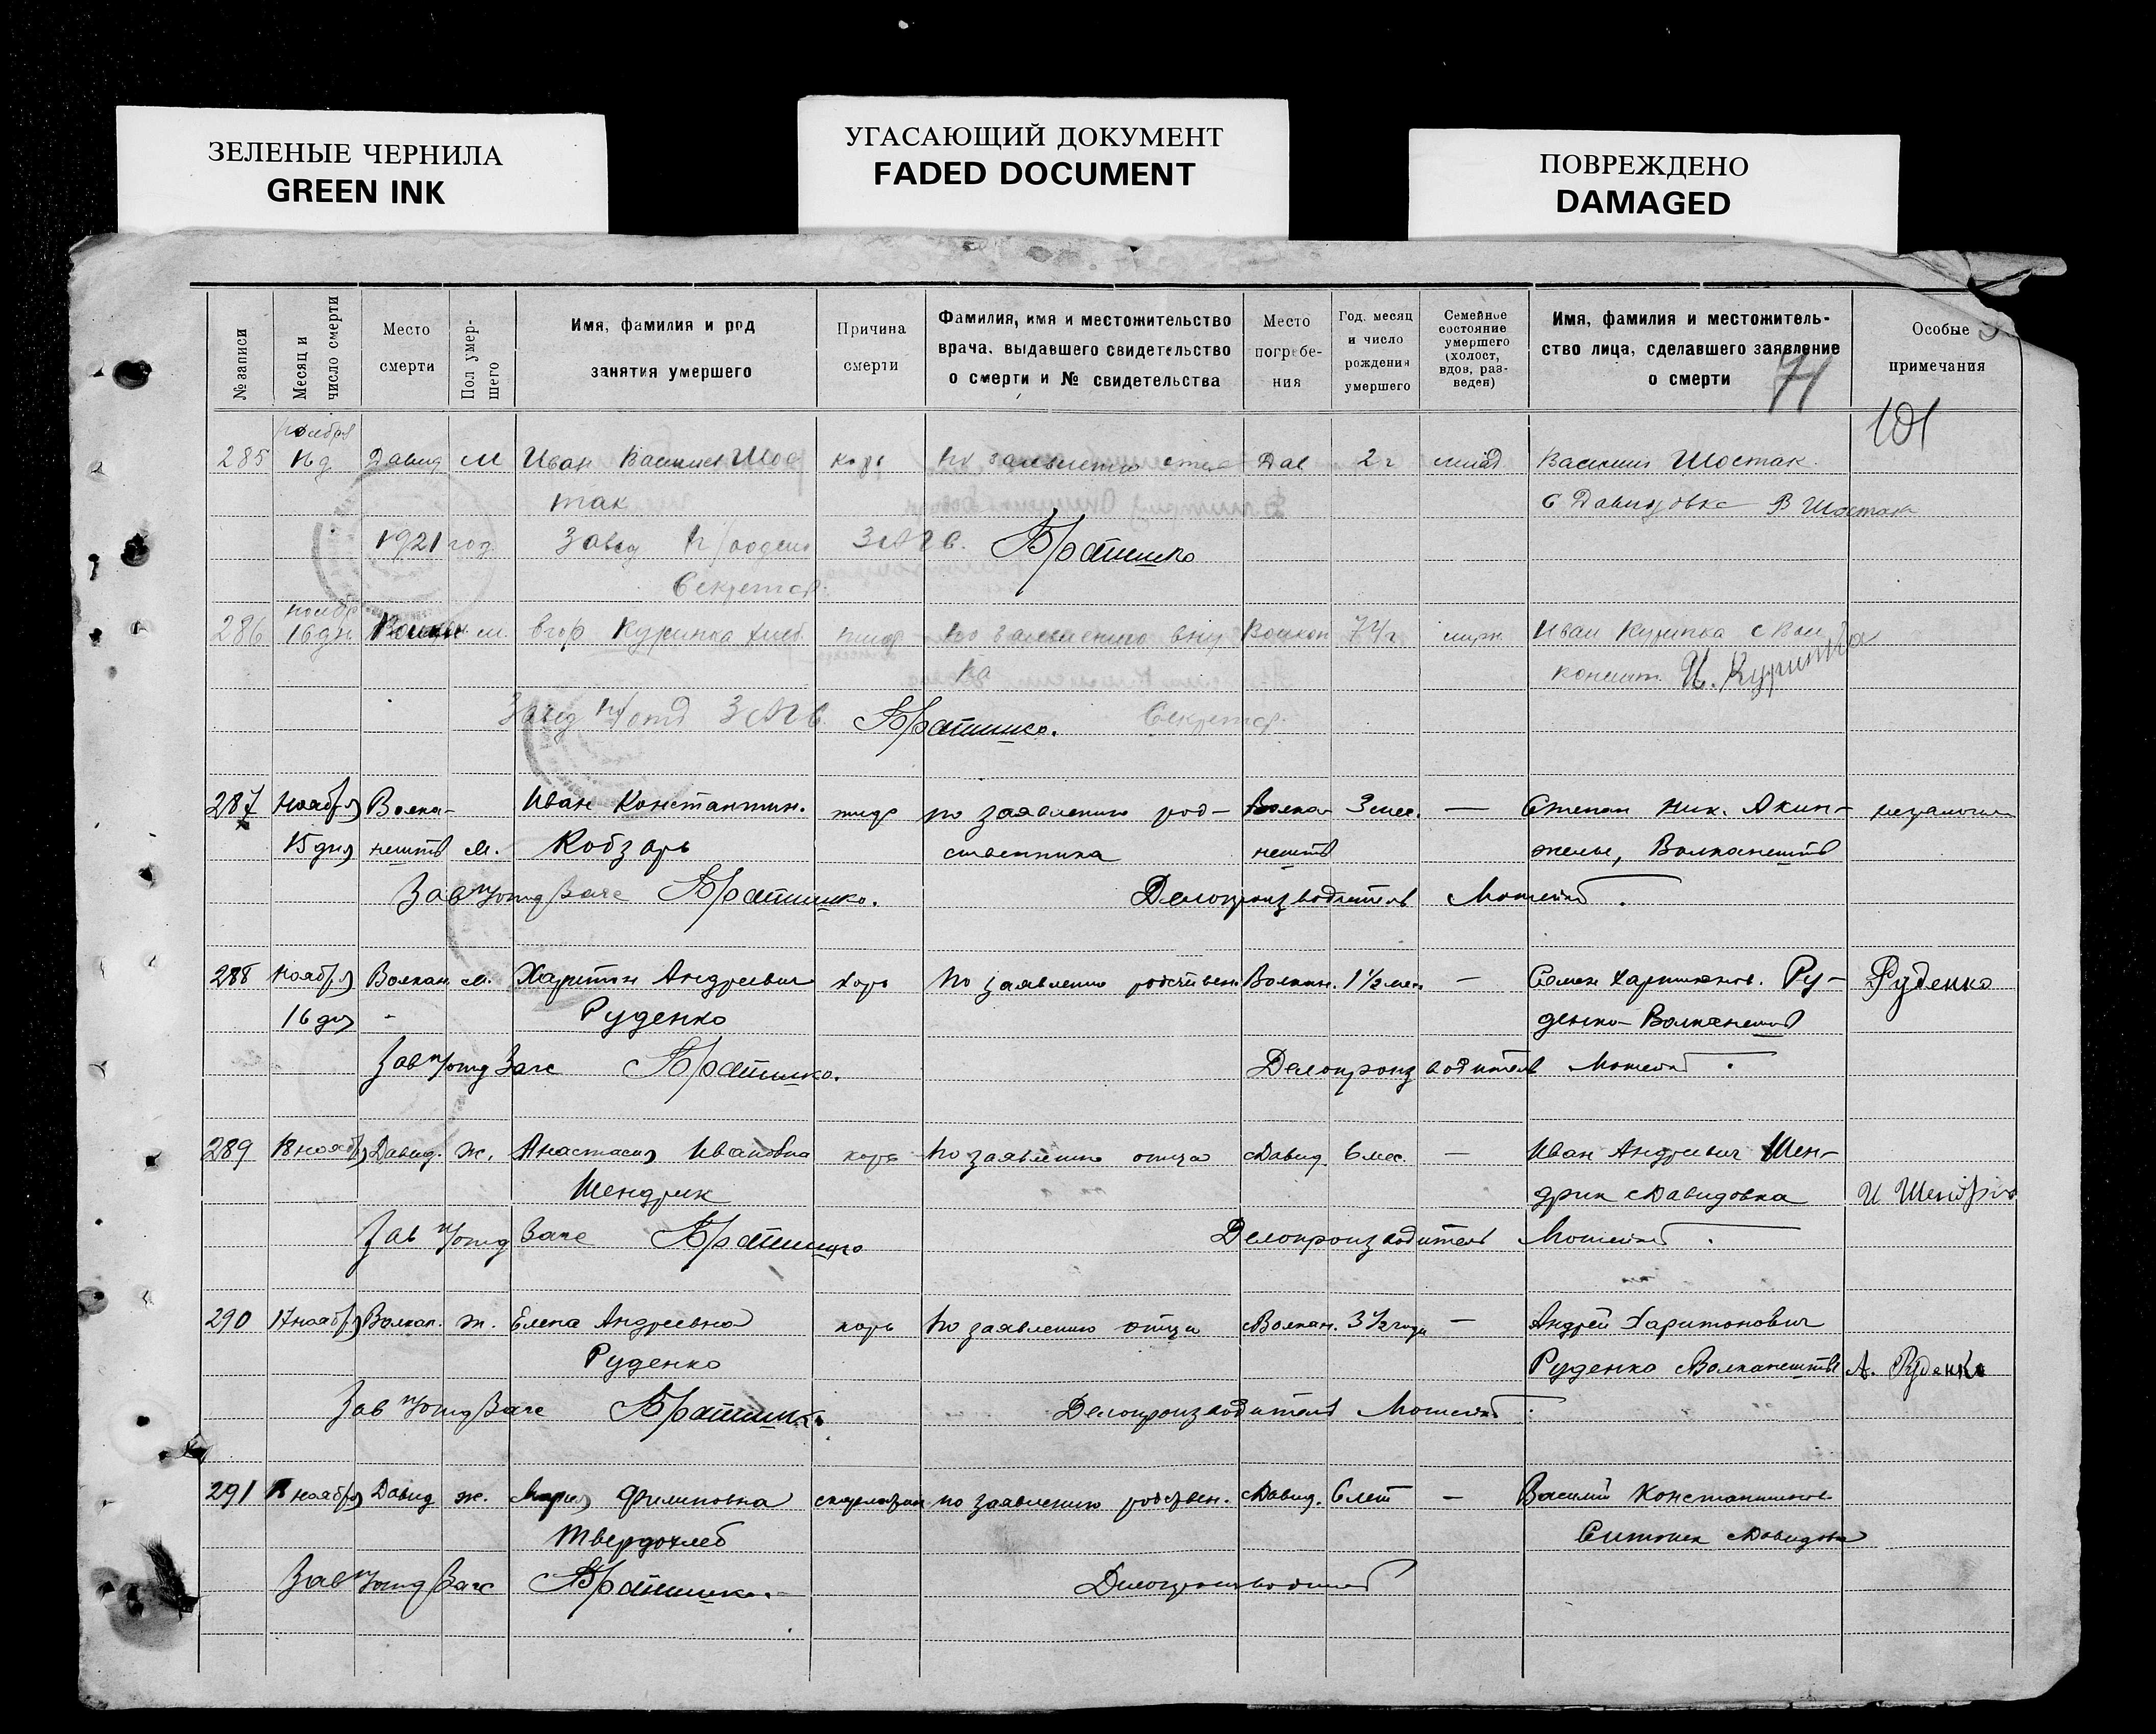 ЗЕЛЕНЫЕ ЧЕРНИЛА
GREEN INK
УГАСАЮЩИЙ ДОКУМЕНТ
FADED DOCUMENT
ПОВРЕЖДЕНО
DAMAGED
№ записи
Месяц и число смерти
Место смерти
Пол умер-шего
Имя, фамилия и род занятия умершего
Причина смерти
Фамилия, имя и местожительство врача, выдавшего свидетельство о смерти и № свидетельства
Место погребе-ния
Год, месяц и число рождения умершего
Семейное состояние умершего (холост, вдов, раз-веден)
Имя, фамилия и местожитель-ство лица, сделавшего заявление о смерти
Особые примечания
71
101
ноября
285 16 д Давид М Иван Васильев Шос корь по заявлению отца Дав 2 г Василий Шостак
так с Давидовка В Шостак
1921 год Завед Братишко
Секретар.
286 16 дн м. Егор Куритка по заявлению вну Волкон 74 г Иван Куритка с Вол
ка И. Куритка
Завед п/отд Братишко. Секретар.
287 Ноября Волка- Иван Константин. тиф по заявлению род- Волка- 3 мес. — Степан Ник. Акин-
15 дня нешты м. Кобзарь ственника нешты Волканешты
Зав п/отд Загс Братишко. Делопроизводитель
288 Ноября Волкан. м. Харитон Андреевич корь по заявлению родствен Волкан. 1 1/2 мес — Семен Харитонов. Ру- Руденко
16 дня Руденко денко Волканешты
Зав п/отд Загс Братишко. Делопроизводитель
289 18 ноября Давид. ж. Анастасия Ивановна корь по заявлению отца Давид. 6 мес. — Иван Андреевич Шен-
Шендрик дрик Давидовка И Шендрик
Зав п/отд Загс Братишко Делопроизводитель
290 17 ноября Волкан. ж. Елена Андреевна корь по заявлению отца Волкан. 3 1/2 года — Андрей Харитонович
Руденко Руденко Волканешты А. Руденко
Зав п/отд Загс Братишко Делопроизводитель
291 ноября Давид ж. Мария Филиповна скарлатина по заявлению родствен. Давид. 6 лет — Василий Константинов
Твердохлеб Давидовка
Зав п/отд Загс Братишко. Делопроизводитель